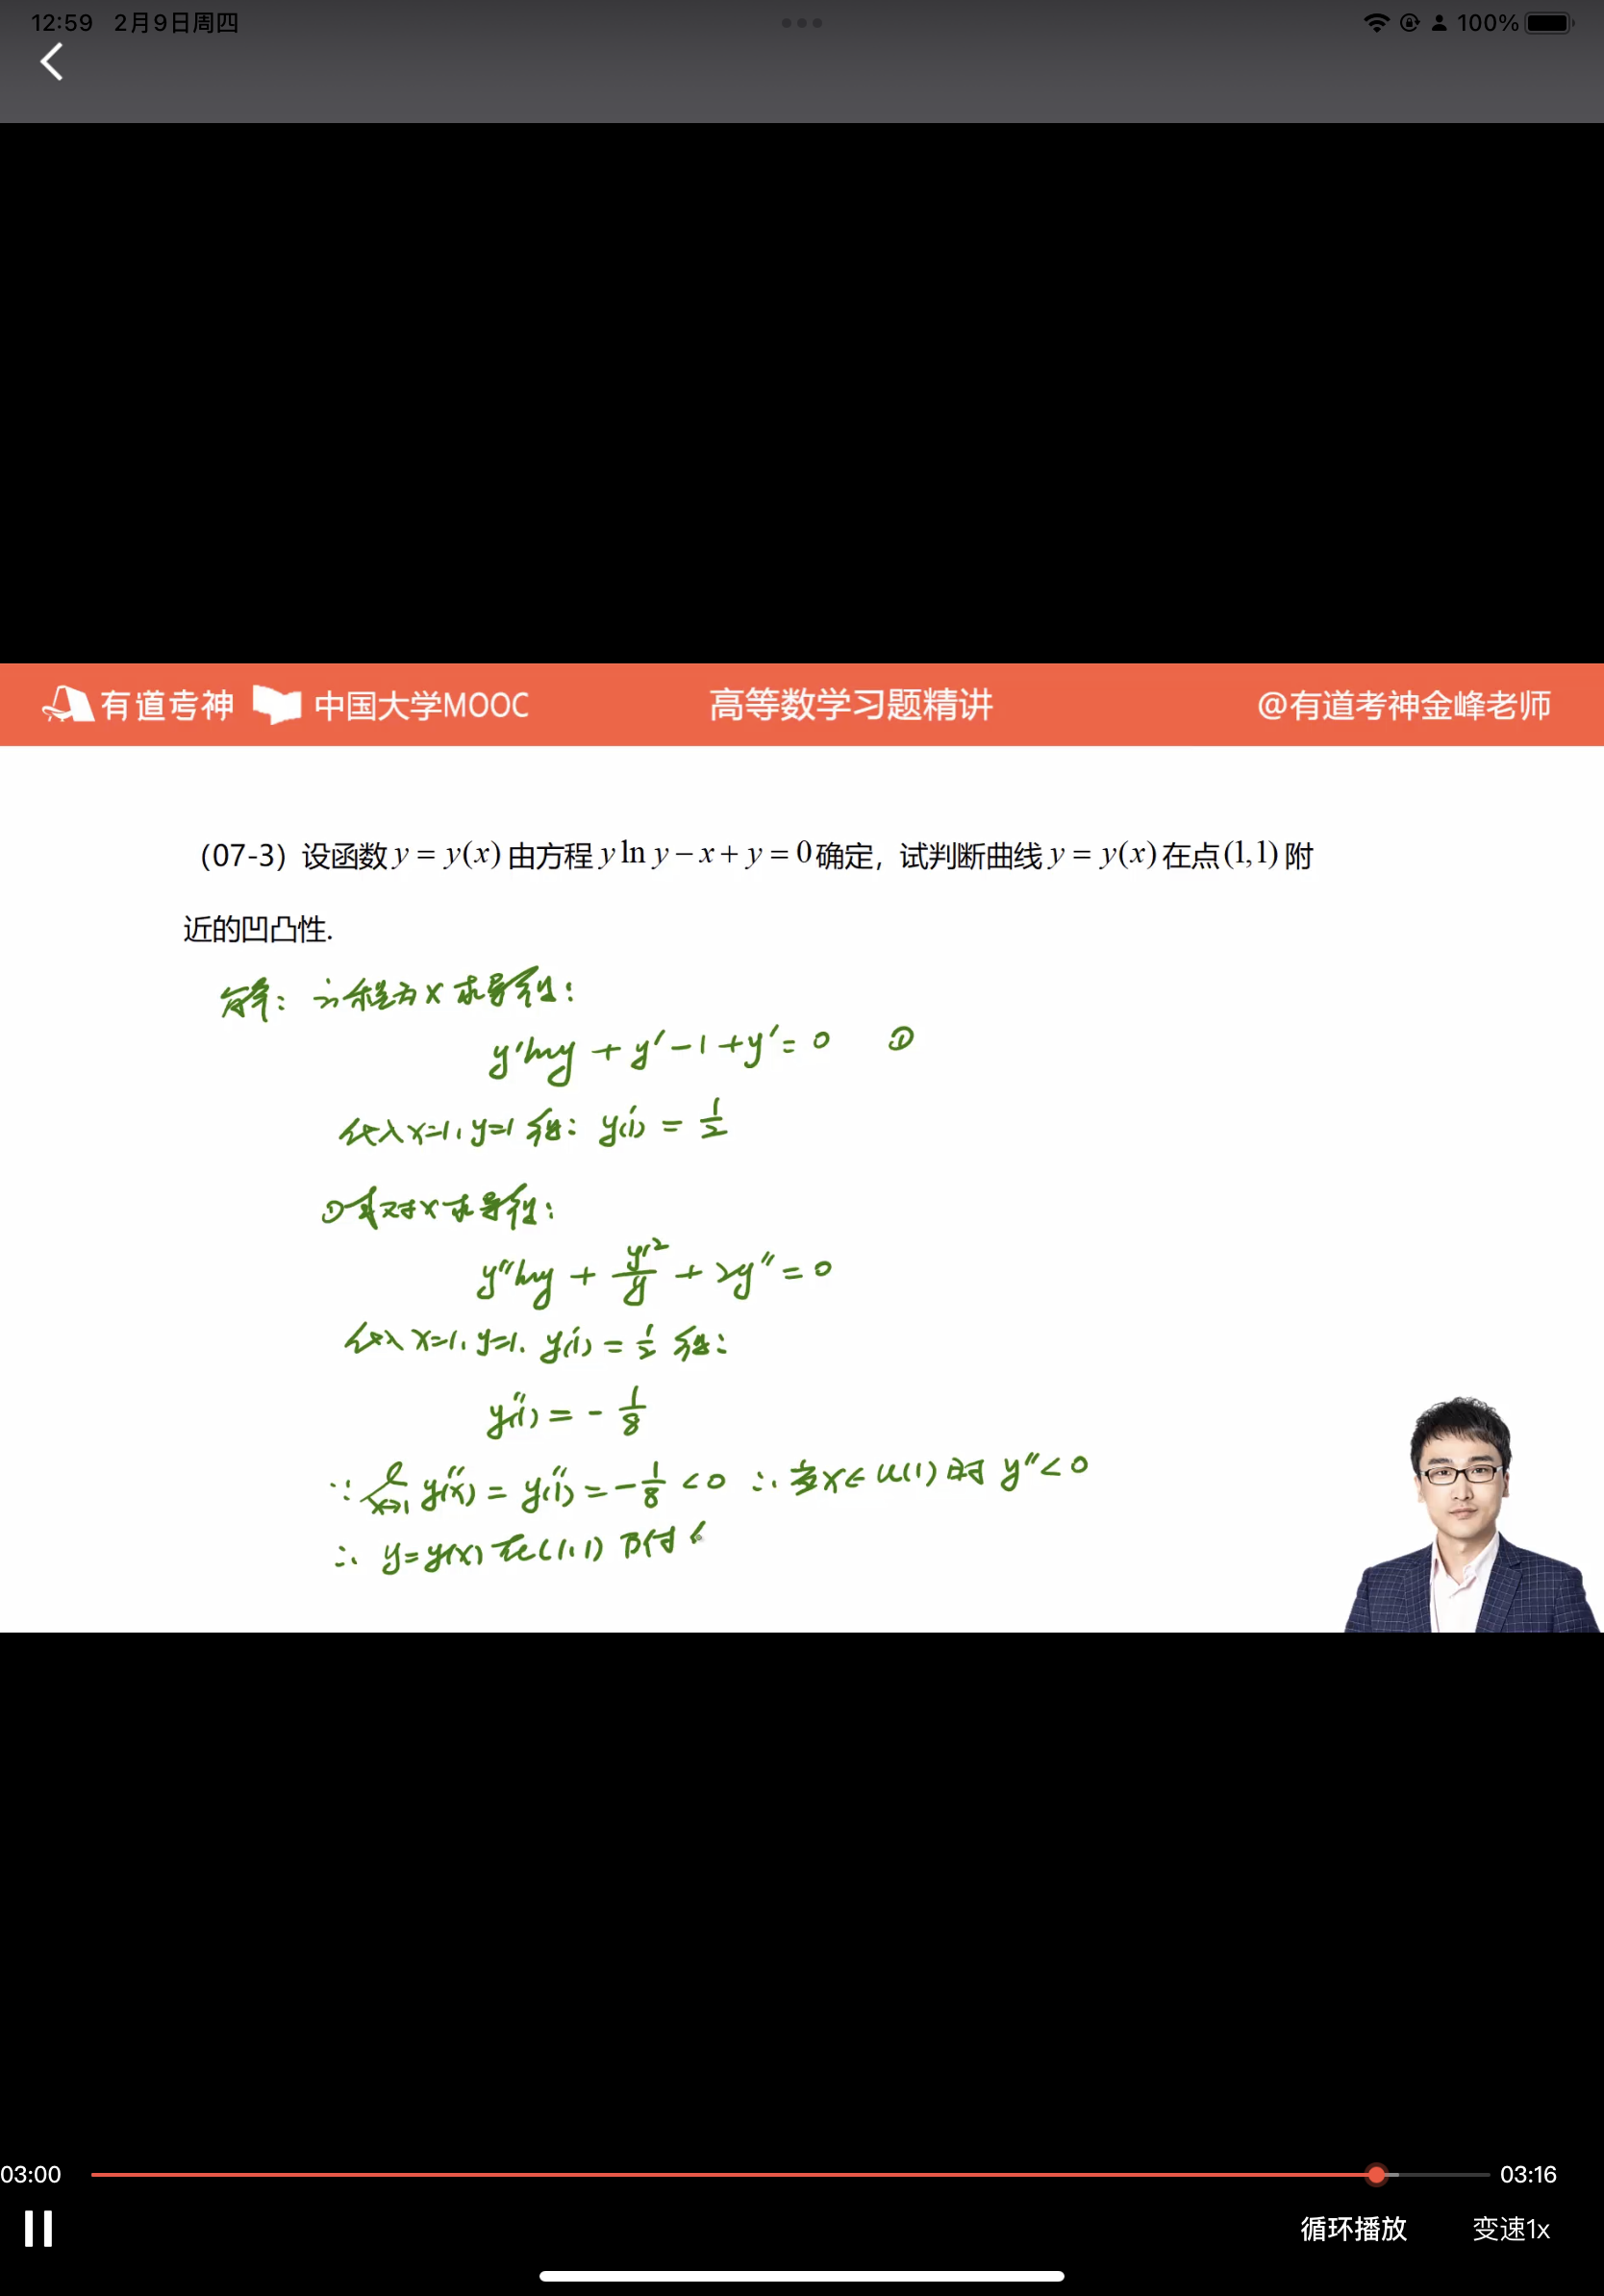 12:59 2月9日周四
100%
有道考神 中国大学MOOC 高等数学习题精讲 @有道考神金峰老师
（07-3）设函数 y = y(x) 由方程 y ln y − x + y = 0 确定，试判断曲线 y = y(x) 在点 (1,1) 附
近的凹凸性.
解：方程对x求导得：
y'lny + y' − 1 + y' = 0 ①
代入x=1, y=1 得：y'(1) = 1/2
①式对x求导得：
y''lny + y'²/y + 2y'' = 0
代入x=1, y=1, y'(1) = 1/2 得：
y''(1) = − 1/8
∵ lim x→1 y''(x) = y''(1) = − 1/8 < 0 ∴ 当x∈U(1)时 y'' < 0
∴ y = y(x) 在(1,1) 附
03:00 03:16
循环播放 变速1x